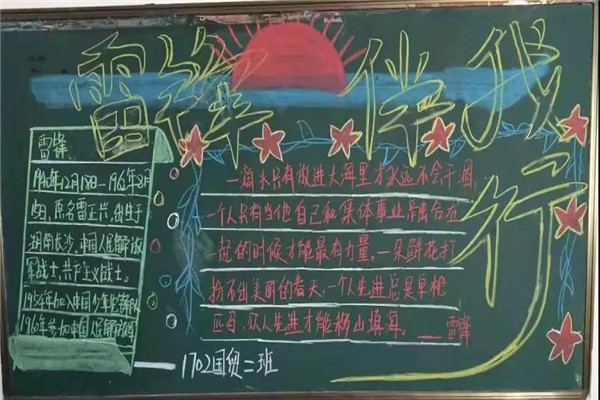 雷锋伴我行
雷锋
1940年12月18日—1962年8月
15日,原名雷正兴,出生于
湖南长沙,中国人民解放
军战士,共产主义战士。
1954年加入中国少年先锋队
1960年参加中国人民解放军
一滴水只有放进大海里才永远不会干涸
一个人只有当他自己和集体事业融合在一
起的时候才能最有力量。一朵鲜花打
扮不出美丽的春天,一个人先进总是单枪
匹马,众人先进才能移山填海。——雷锋
1702国贸二班